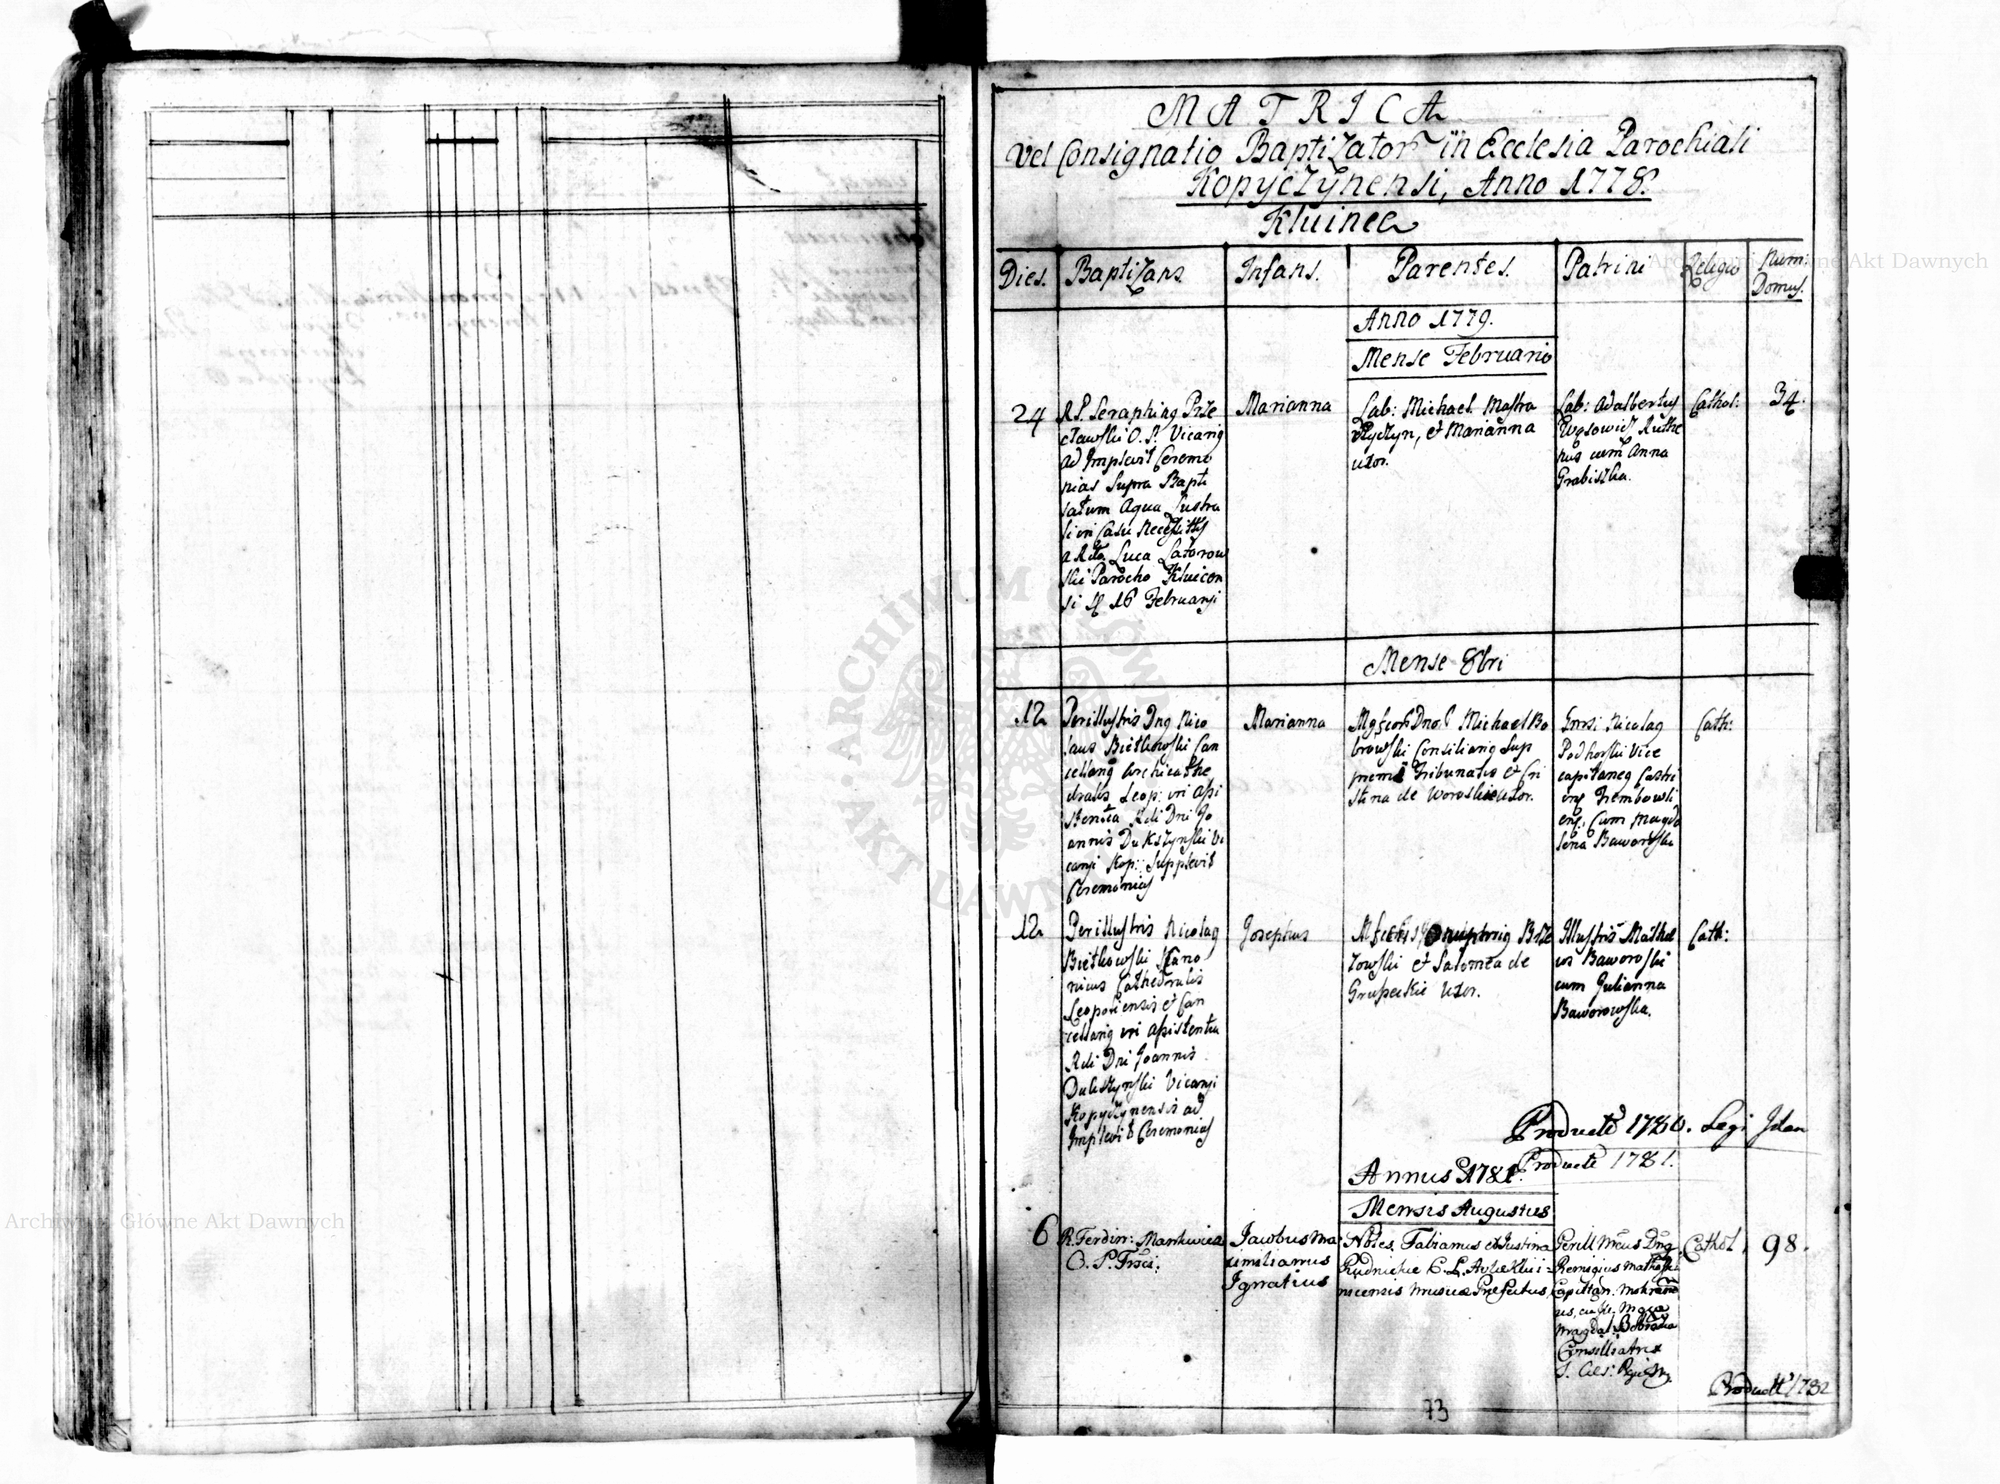 MATRICA
Vel Consignatio Baptizator in Ecclesia Parochiali
Kopyczynensi, Anno 1778.
Kluince
Dies.
Baptizans
Infans.
Parentes.
Patrini
Religio
Num:
Domus.
Anno 1779.
Mense Februario
24
R.P. Seraphing Prze
cławski O. P. Vicarig
ad Implevit Ceremo
nias Supra Bapti
satum Aqua Lustra
li in Casu
Luca
ski Parocho
si 16 Februarji
Marianna
Lab: Michael Mastra
et Marianna
uxor.
Lab: Adalbertus
Wąsowicz Ruthe
nus cum Anna
Grabiszka.
Cathol:
34.
Mense 8bri
12
Perillustris Dng Nico
laus Bietkowski Can
cellarig Archicathe
dralis Leop: in assi
stentia Rdi Dni Jo
annis Dukszynski Vi
carji Kop: Supplevit
Ceremonias
Marianna
Dno Michael Bo
browski Consiliarig Sup
premi Tribunatus et Cri
stina de Woroskie uxor.
Nicolag
Podhorski Vice
capitaneg Castri
Trembowli
ens, Cum Magda
lena Baworoska
Cath:
12
Perillustris Nicolag
Bietkowski Kano
nicus Cathedralis
Leopoliensis et Can
cellarig in assistentia
Rdi Dni Joannis
Dukszynski Vicarji
Kopyczynensis ad
Implevit Ceremonias
Josephus
Onuphrig Brze
zowski et Salomea de
Grupeckie uxor.
Illustris Mathe
us Baworoski
cum Julianna
Baworowska.
Cath:
Product 1780. Legi
Product 1781.
Annus 1781.
Mensis Augustus
6
R. Ferdin: Mankwica
O. P.
Jacobus Ma
ximilianus
Ignatius
Fabianus et Justina
Rudnickie
Musicæ Prefectus
Perill Dng
Remigius
Capitan.
Magdal:
Consiliatrix
98.
Cathol.
Product 1782
73
Archiwum Główne Akt Dawnych
Archiwum Główne Akt Dawnych
ARCHIWUM GŁÓWNE AKT DAWNYCH